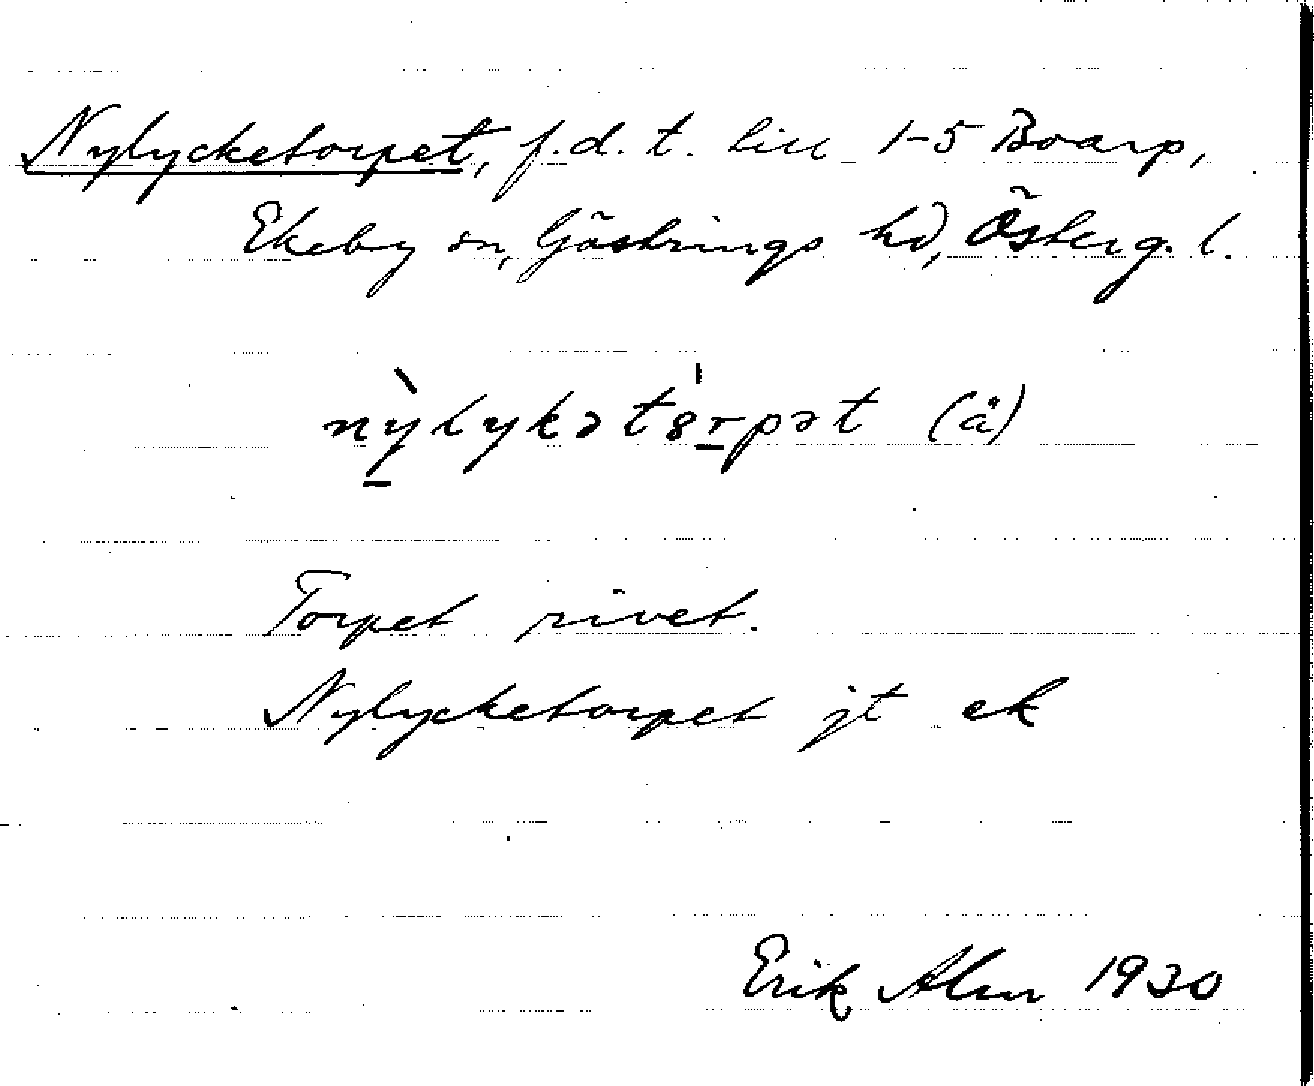 Nylycketorpet, f.d. t. till 1-5 Boarp,
Ekeby sn, Göstrings hd, Österg. l.
nỳlykətȣrpət (å)
Torpet rivet.
Nylycketorpet jt ek
Erik Alm 1930